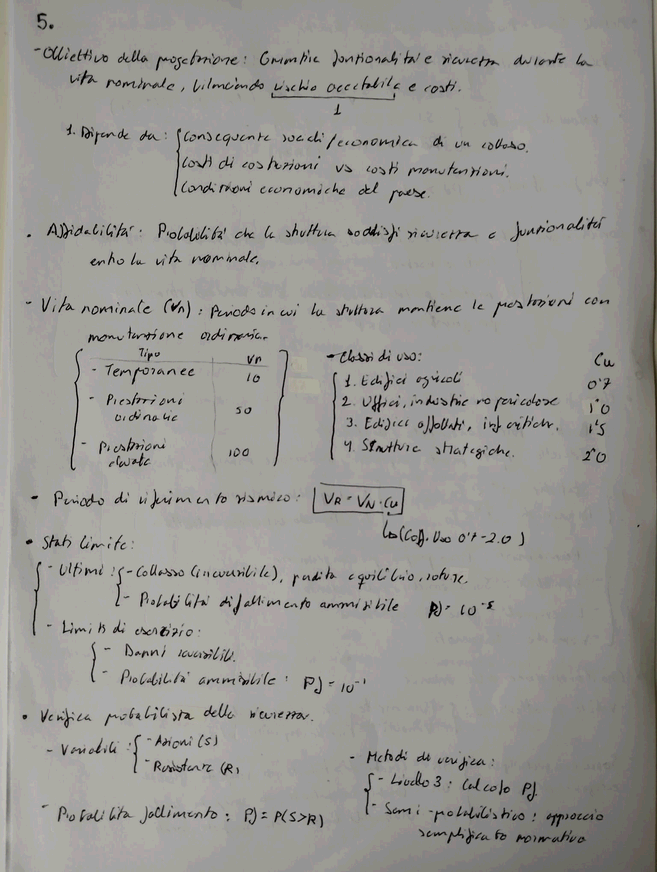 5.
- Obiettivo della progettazione: Garantire funzionalità e sicurezza durante la
vita nominale, bilanciando rischio accettabile e costi.
1
1. Dipende da: conseguenze sociali/economica di un collasso.
costi di costruzioni vs costi manutenzioni.
Condizioni economiche del paese.
• Affidabilità: Probabilità che la struttura soddisfi sicurezza e funzionalità
entro la vita nominale.
- Vita nominale (VN): Periodo in cui la struttura mantiene le prestazioni con
manutenzione ordinaria.
Tipo VN
- Temporanee 10
- Prestazioni
ordinarie 50
- Prestazioni
elevate 100
- Classi di uso: Cu
1. Edifici agricoli 0'7
2. Uffici, industrie no pericolose 1'0
3. Edifici affollati, inf. critiche. 1'5
4. Strutture strategiche. 2'0
- Periodo di riferimento sismico: VR = VN · Cu
(Coef. Uso 0'7-2.0)
• Stati limite:
- Ultimi: - Collasso (irreversibile), perdita equilibrio, rotture.
- Probabilità di fallimento ammissibile Pf = 10⁻⁵
- Limiti di esercizio:
- Danni reversibili.
- Probabilità ammissibile: Pf = 10⁻¹
• Verifica probabilista della sicurezza.
- Variabili: - Azioni (S)
- Resistenze (R)
- Probabilità fallimento: Pf = P(S>R)
- Metodi di verifica:
- Livello 3: Calcolo Pf
- Semi-probabilistico: approccio
semplificato normativo